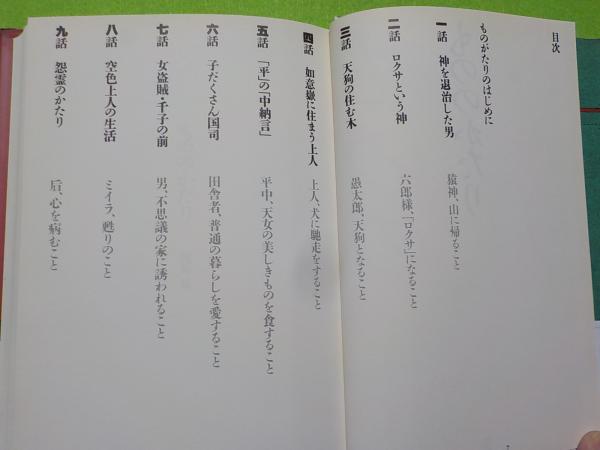 目次
ものがたりのはじめに
一話 神を退治した男 猿神、山に帰ること
二話 ロクサという神 六郎様、「ロクサ」になること
三話 天狗の住む木 愚太郎、天狗となること
四話 如意嶽に住まう上人 上人、犬に馳走をすること
五話 「平」の「中納言」 平中、天女の美しきものを食すること
六話 子だくさん国司 田舎者、普通の暮らしを愛すること
七話 女盗賊・千子の前 男、不思議の家に誘われること
八話 空色上人の生活 ミイラ、甦りのこと
九話 怨霊のかたり 后、心を病むこと